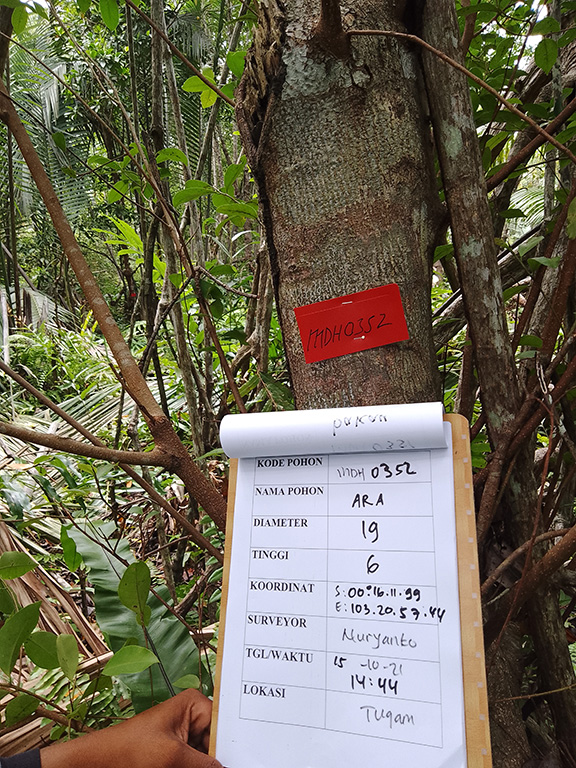 MDH0352
pakan
KODE POHON MDH 0352
NAMA POHON ARA
DIAMETER 19
TINGGI 6
KOORDINAT S: 00°16.11.99
E: 103.20.57.44
SURVEYOR Nuryanto
TGL/WAKTU 15 -10-21
14:44
LOKASI Tugam